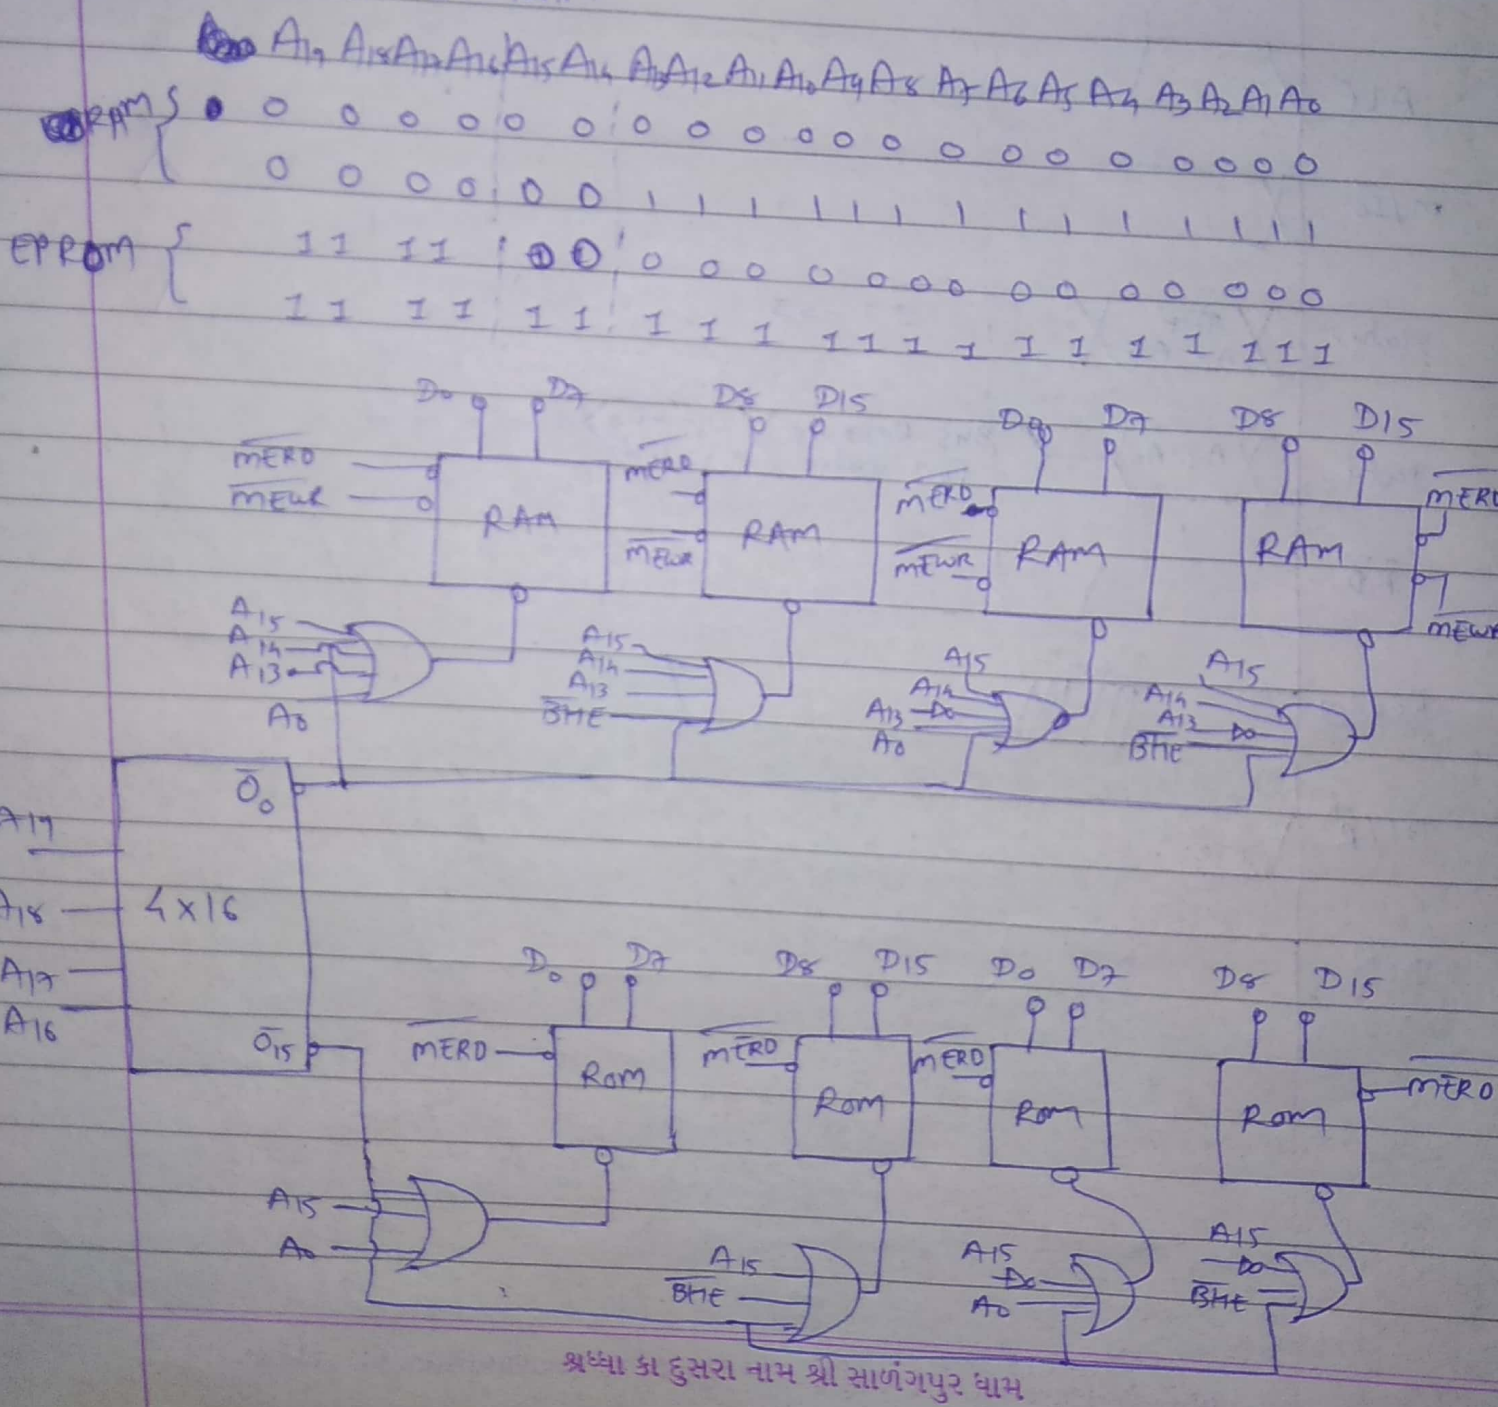 A19 A18 A17 A16 A15 A14 A13 A12 A11 A10 A9 A8 A7 A6 A5 A4 A3 A2 A1 A0
RAM { 0 0 0 0 0 0 0 0 0 0 0 0 0 0 0 0 0 0 0 0
0 0 0 0 0 0 1 1 1 1 1 1 1 1 1 1 1 1 1 1
EPROM { 1 1 1 1 0 0 0 0 0 0 0 0 0 0 0 0 0 0 0 0
1 1 1 1 1 1 1 1 1 1 1 1 1 1 1 1 1 1 1 1
D0 D7 D8 D15 D0 D7 D8 D15
M̅E̅R̅D̅ M̅E̅R̅D̅ M̅E̅R̅D̅ M̅E̅R̅D̅
M̅E̅W̅R̅ M̅E̅W̅R̅ M̅E̅W̅R̅ M̅E̅W̅R̅
RAM RAM RAM RAM
A15 A15 A15 A15
A14 A14 A14 A14
A13 A13 A13 A13
A0 B̅H̅E̅ A0 B̅H̅E̅
O̅0
A19
A18 4×16
A17
A16
O̅15
D0 D7 D8 D15 D0 D7 D8 D15
M̅E̅R̅D̅ M̅E̅R̅D̅ M̅E̅R̅D̅ M̅E̅R̅D̅
Rom Rom Rom Rom
A15 A15 A15 A15
A0 B̅H̅E̅ A0 B̅H̅E̅
શ્રધ્ધા કા દુસરા નામ શ્રી સાળંગપુર ધામ